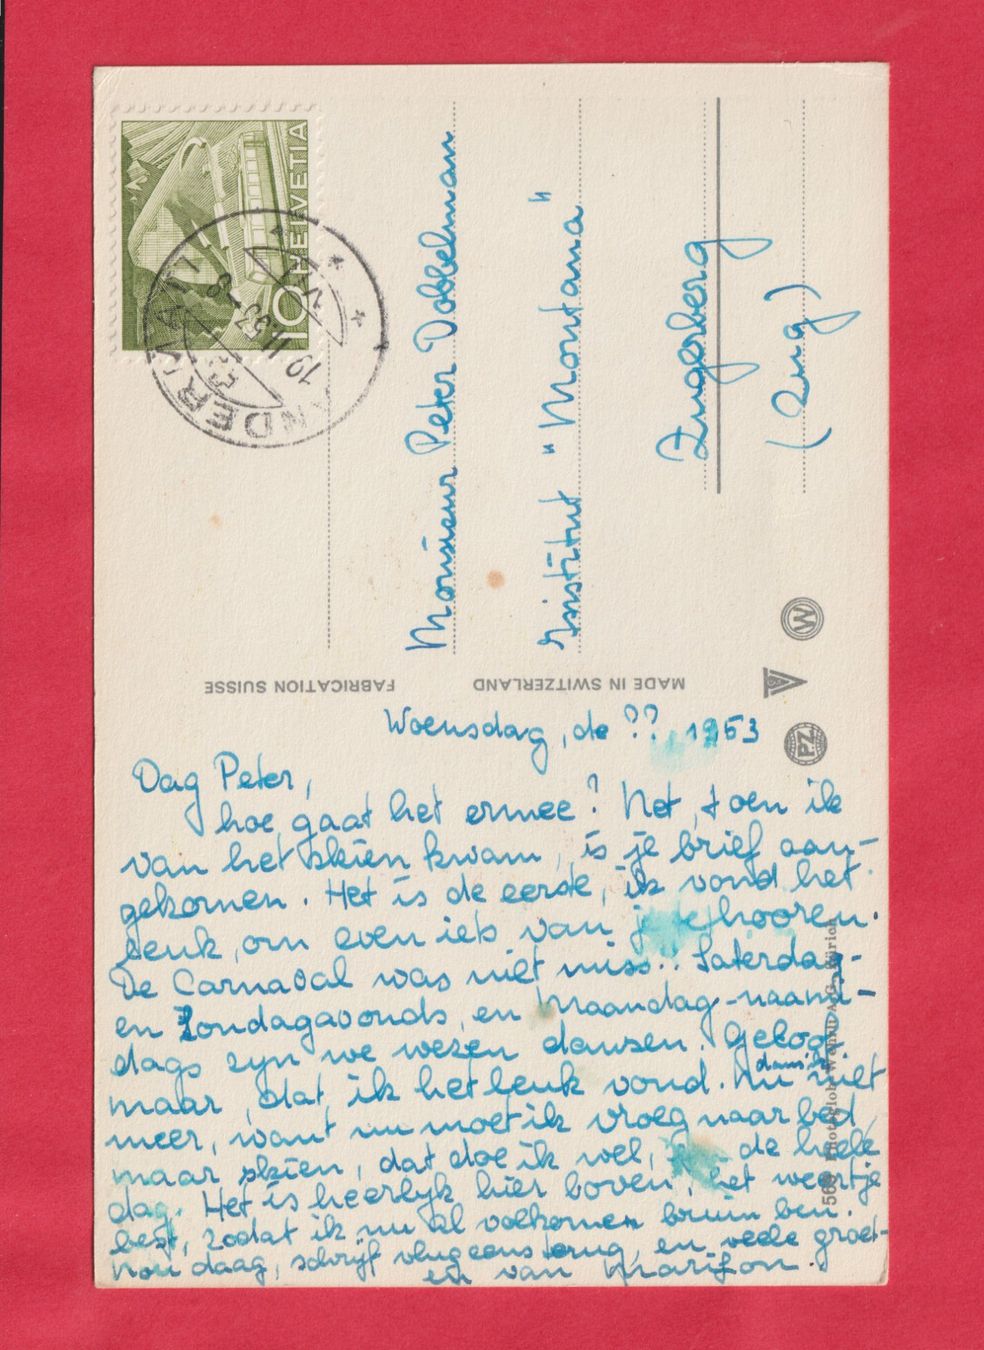 HELVETIA
10
ANDERMATT
19.II.53-8
Monsieur Peter Dobbelman
Institut "Montana"
Zugerberg
(Zug)
FABRICATION SUISSE
MADE IN SWITZERLAND
W
PZ
Photoglob-Wehrli A.G. Zürich
Woensdag, de ?? 1953
Dag Peter,
hoe gaat het ermee? Net, toen ik
van het skiën kwam, is je brief aan-
gekomen. Het is de eerste, ik vond het
leuk, om even iets van je te hooren.
De Carnaval was niet mis.. Zaterdag-
en Zondagavonds, en Maandag-naamid-
dags zyn we wezen dansen. Geloof
maar, dat ik het leuk vond. Nu dans ik niet
meer, want nu moet ik vroeg naar bed,
maar skiën, dat doe ik wel, de heele
dag. Het is heerlyk hier boven, het weertje
best, zodat ik nu al volkomen bruin ben.
Nou daag, schrijf vlug eens terug, en veele groet-
en van Marijon.